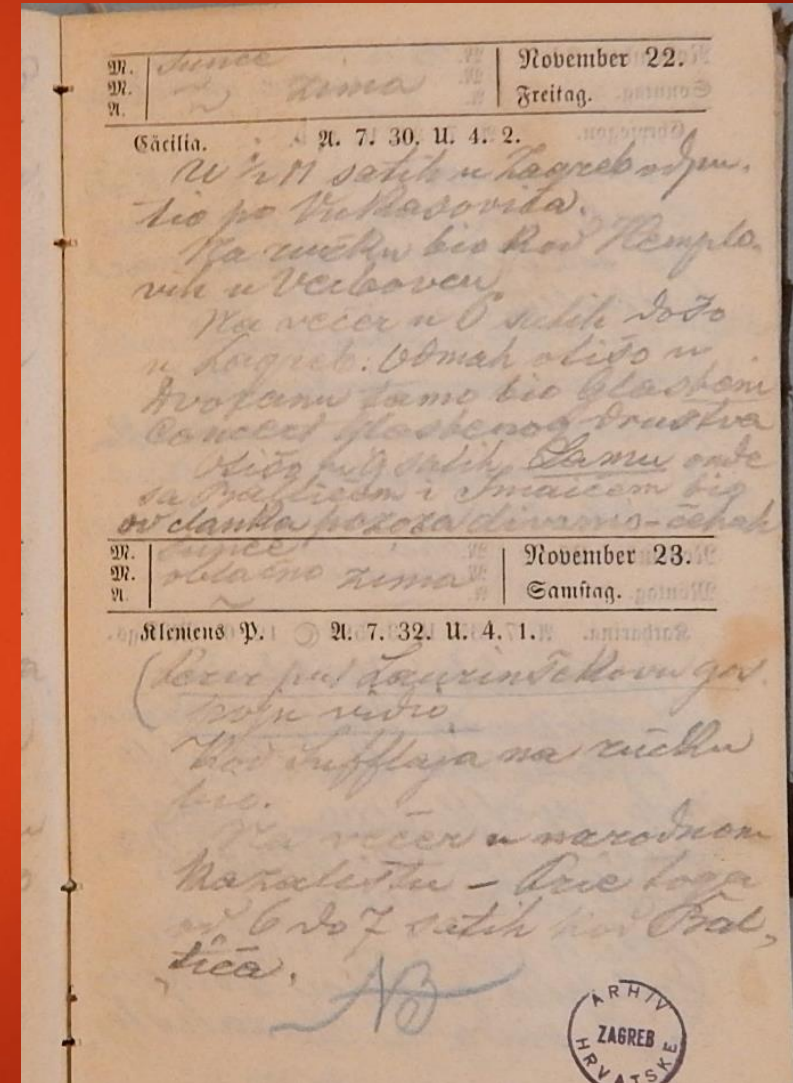 M. sunce
M. zima
A.
November 22.
Freitag.
Cäcilia. A. 7. 30. U. 4. 2.
U ½ 11 satih u Zagreb odpu-
tio po Vukasovića.
Na ručku bio kod Hemplo-
vih u Verbovcu
Na večer u 6 satih došo
u Zagreb. Odmah otišo u
Dvoranu tamo bio Glasbeni
Concert Glasbenog društva
Otišo u 9 satih, onde
sa i bio
od
M. sunce
M. oblačno zima
A.
November 23.
Samstag.
Klemens P. A. 7. 32. U. 4. 1.
(Pervi put gos-
poju vidio.
Kod Sufflaja na ručku
bio.
Na večer u narodnom
kazalištu – Prie toga
od 6 do 7 satih kod Bal-
tića.
NB
ARHIV HRVATSKE
ZAGREB